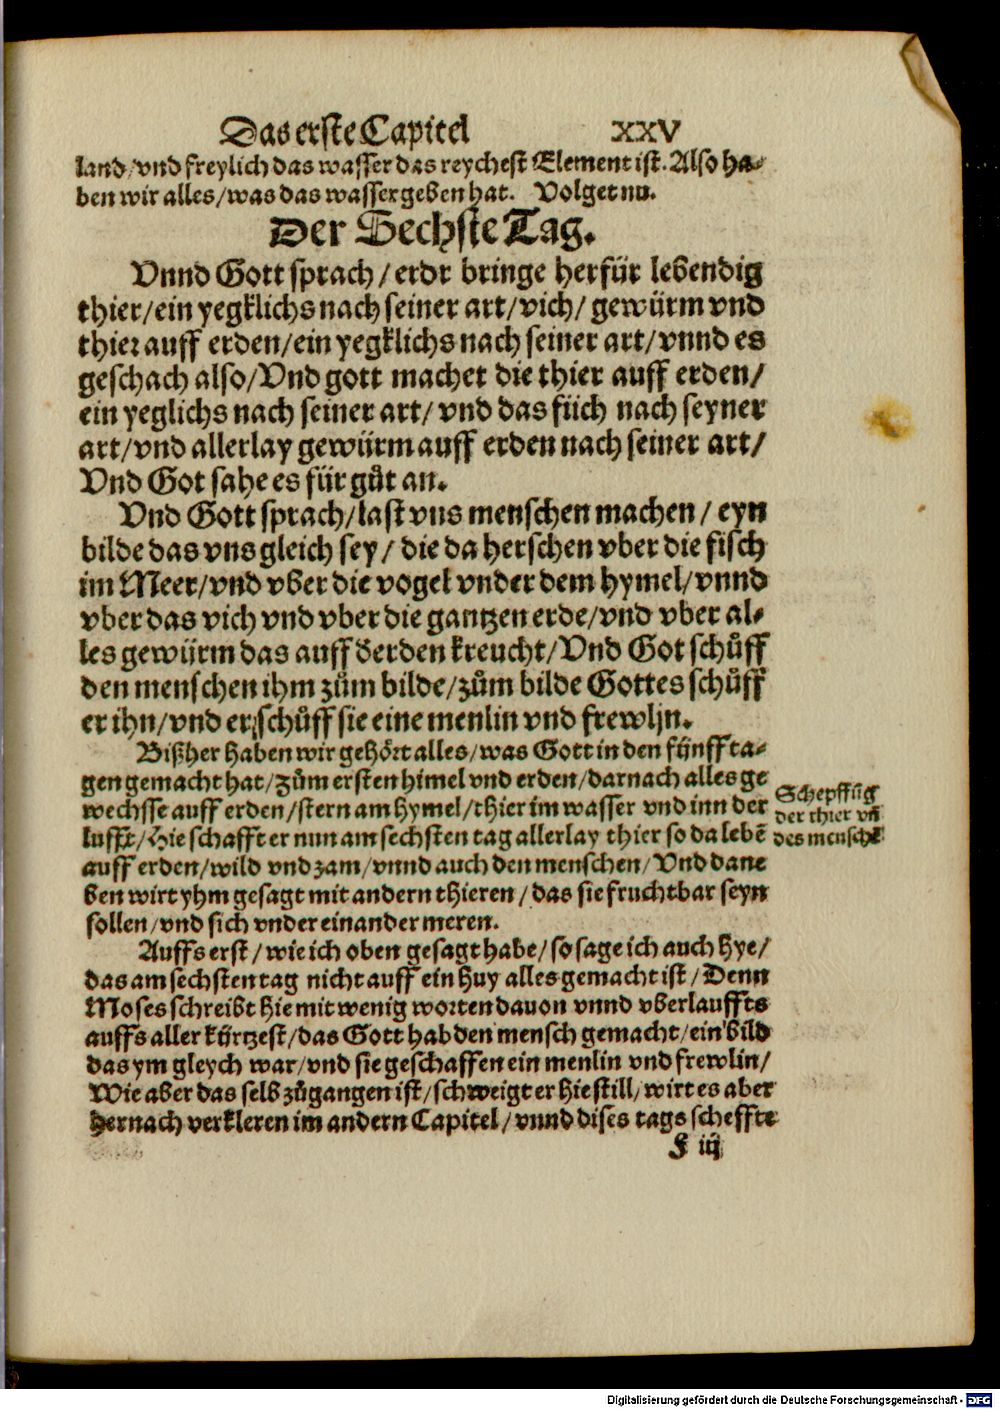 Das erste Capitel XXV
land/vnd freylich das wasser das reychest Element ist. Also ha-
ben wir alles/was das wasser geben hat. Volget nu.
Der Sechste Tag.
Vnnd Gott sprach/erdr bringe herfür lebendig
thier/ein yegklichs nach seiner art/vich/gewürm vnd
thier auff erden/ein yegklichs nach seiner art/vnnd es
geschach also/Vnd gott machet die thier auff erden/
ein yeglichs nach seiner art/vnd das fiich nach seyner
art/vnd allerlay gewürm auff erden nach seiner art/
Vnd Got sahe es für gůt an.
Vnd Gott sprach/last vns menschen machen/eyn
bilde das vns gleich sey/die da herschen vber die fisch
im Meer/vnd vber die vogel vnder dem hymel/vnnd
vber das vich vnd vber die gantzen erde/vnd vber al-
les gewürm das auff Berden kreucht/Vnd Got schůff
den menschen ihm zům bilde/zům bilde Gottes schůff
er ihn/vnd er schůff sie eine menlin vnd frewlin.
Bißher haben wir gehört alles/was Gott in den fünff ta-
gen gemacht hat/zům ersten himel vnd erden/darnach alles ge
wechsse auff erden/stern am hymel/thier im wasser vnd inn der
lufft/Hie schafft er nun am sechsten tag allerlay thier so da lebē
auff erden/wild vnd zam/vnnd auch den menschen/Vnd dane
ben wirt yhm gesagt mit andern thieren/das sie fruchtbar seyn
sollen/vnd sich vnder einander meren.
Schepffūg
der thier vñ
des menschē
Auffs erst/wie ich oben gesagt habe/so sage ich auch hye/
das am sechsten tag nicht auff ein huy alles gemacht ist/Denn
Moses schreibt hie mit wenig worten dauon vnnd vberlauffts
auffs aller kürtzest/das Gott hab den mensch gemacht/ein bild
das ym gleych war/vnd sie geschaffen ein menlin vnd frewlin/
Wie aber das selb zůgangen ist/schweigt er hie still/wirt es aber
hernach verkleren im andern Capitel/vnnd dises tags scheffte
F iij
Digitalisierung gefördert durch die Deutsche Forschungsgemeinschaft - DFG